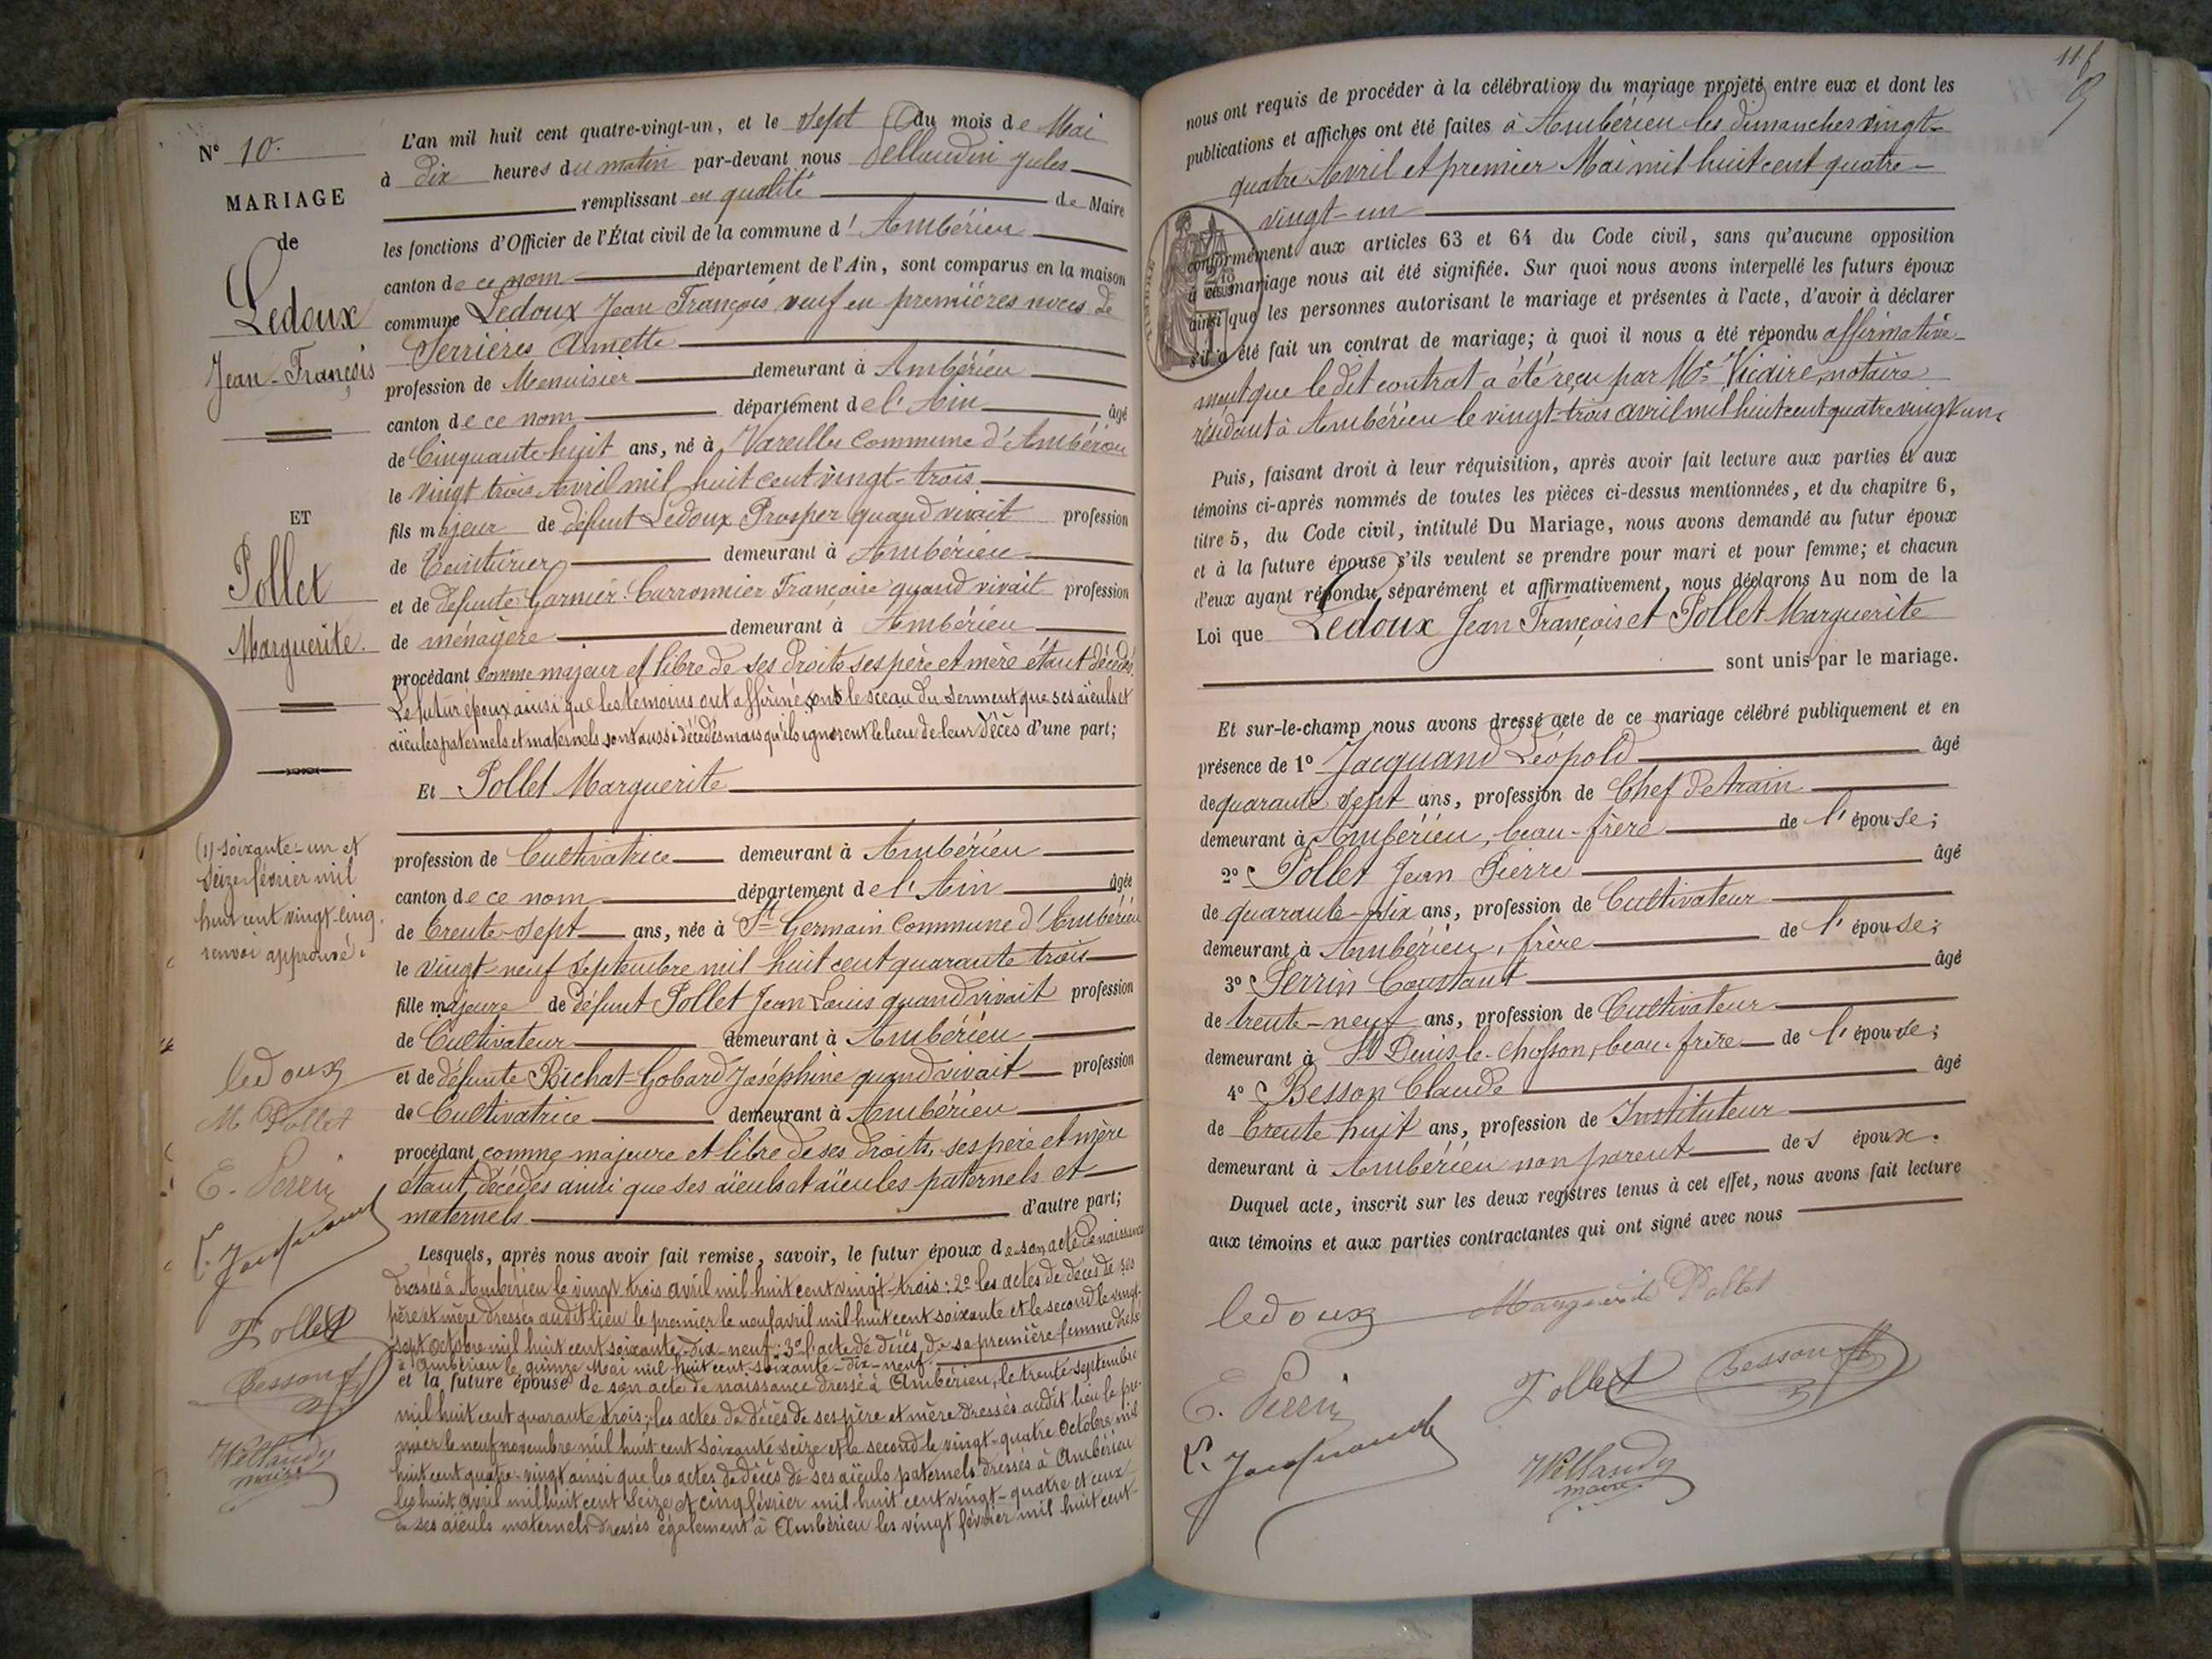 N° 10.
MARIAGE
de
Ledoux
Jean-François
ET
Pollet
Marguerite.
(1) soixante-un et
seize février mil
huit cent vingt-cinq.
renvoi approuvé.
ledoux
M Pollet
E. Perrin
L. Jacquand
Pollet
Besson
maire
L'an mil huit cent quatre-vingt-un, et le sept du mois de Mai
à dix heures du matin par-devant nous Jules
remplissant en qualité de Maire
les fonctions d'Officier de l'État civil de la commune d'Ambérieu
canton de ce nom département de l'Ain, sont comparus en la maison
commune Ledoux Jean François veuf en premières noces de
Serrières Annette
profession de Menuisier demeurant à Ambérieu
canton de ce nom département de l'Ain âgé
de Cinquante-huit ans, né à Vareilles Commune d'Ambérieu
le vingt trois Avril mil huit cent vingt-trois
fils majeur de défunt Ledoux Prosper quand vivait profession
de Teinturier demeurant à Ambérieu
et de défunte Garnier-Carronnier Françoise quand vivait profession
de ménagère demeurant à Ambérieu
procédant comme majeur et libre de ses droits ses père et mère étant décédés.
Le futur époux ainsi que les témoins ont affirmé sous le sceau du serment que ses aïeuls et
aïeules paternels et maternels sont aussi décédés mais qu'ils ignorent le lieu de leur décès d'une part;
Et Pollet Marguerite
profession de Cultivatrice demeurant à Ambérieu
canton de ce nom département de l'Ain âgée
de trente-sept ans, née à St Germain Commune d'Ambérieu
le vingt-neuf Septembre mil huit cent quarante trois
fille majeure de défunt Pollet Jean Louis quand vivait profession
de Cultivateur demeurant à Ambérieu
et de défunte Bichat-Gobard Joséphine quand vivait profession
de Cultivatrice demeurant à Ambérieu
procédant comme majeure et libre de ses droits, ses père et mère
étant décédés ainsi que ses aïeuls et aïeules paternels et
maternels d'autre part;
Lesquels, après nous avoir fait remise, savoir, le futur époux de son acte de naissance
dressés à Ambérieu le vingt trois avril mil huit cent vingt-trois: 2° les actes de décès de ses
père et mère dressés audit lieu le premier le neuf avril mil huit cent soixante et le second le vingt-
sept Octobre mil huit cent soixante-dix-neuf: 3° l'acte de décès de sa première femme dressé
à Ambérieu le quinze Mai mil huit cent soixante-dix-neuf.
et la future épouse de son acte de naissance dressé à Ambérieu, le trente septembre
mil huit cent quarante trois; les actes de décès de ses père et mère dressés audit lieu le pre-
mier le neuf novembre mil huit cent soixante seize et le second le vingt-quatre Octobre mil
huit cent quatre-vingt ainsi que les actes de décès de ses aïeuls paternels dressés à Ambérieu
les huit avril mil huit cent seize et cinq février mil huit cent vingt-quatre et ceux
de ses aïeuls maternels dressés également à Ambérieu les vingt février mil huit cent
nous ont requis de procéder à la célébration du mariage projeté entre eux et dont les
publications et affiches ont été faites à Ambérieu les dimanches vingt-
quatre Avril et premier Mai mil huit cent quatre-
vingt-un
conformément aux articles 63 et 64 du Code civil, sans qu'aucune opposition
à ce mariage nous ait été signifiée. Sur quoi nous avons interpellé les futurs époux
ainsi que les personnes autorisant le mariage et présentes à l'acte, d'avoir à déclarer
s'il a été fait un contrat de mariage; à quoi il nous a été répondu affirmative-
ment que le dit contrat a été reçu par Me Vicaire, notaire
résidant à Ambérieu le vingt-trois avril mil huit cent quatre vingt un.
Puis, faisant droit à leur réquisition, après avoir fait lecture aux parties et aux
témoins ci-après nommés de toutes les pièces ci-dessus mentionnées, et du chapitre 6,
titre 5, du Code civil, intitulé Du Mariage, nous avons demandé au futur époux
et à la future épouse s'ils veulent se prendre pour mari et pour femme; et chacun
d'eux ayant répondu séparément et affirmativement, nous déclarons Au nom de la
Loi que Ledoux Jean François et Pollet Marguerite
sont unis par le mariage.
Et sur-le-champ nous avons dressé acte de ce mariage célébré publiquement et en
présence de 1° Jacquand Léopold âgé
de quarante sept ans, profession de Chef de train
demeurant à Ambérieu, beau-frère de l'épouse;
2° Pollet Jean Pierre âgé
de quarante-six ans, profession de Cultivateur
demeurant à Ambérieu, frère de l'épouse;
3° Perrin Constant âgé
de trente-neuf ans, profession de Cultivateur
demeurant à St Denis-le-Chosson, beau-frère de l'épouse;
4° Besson Claude âgé
de trente huit ans, profession de Instituteur
demeurant à Ambérieu non parent des époux.
Duquel acte, inscrit sur les deux registres tenus à cet effet, nous avons fait lecture
aux témoins et aux parties contractantes qui ont signé avec nous
ledoux Marguerite Pollet
E. Perrin Pollet Besson
L. Jacquand
maire